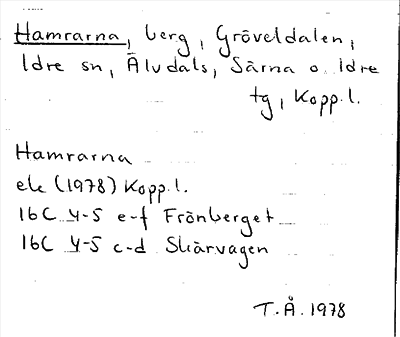 Hamrarna, berg, Gröveldalen,
Idre sn, Älvdals, Särna o. Idre
tg, Kopp. l.
Hamrarna
ek (1978) Kopp. l.
16C 4-5 e-f Frönberget
16C 4-5 c-d Skärvagen
T. Å. 1978